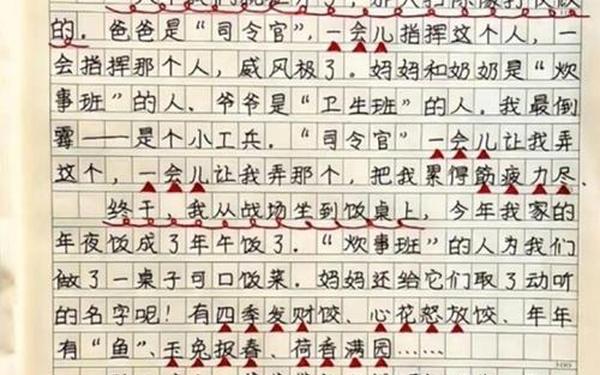 的. 爸爸是“司令官”, 一会儿指挥这个人, 一
会指挥那个人, 威风极了. 妈妈和奶奶是“炊
事班”的人、爷爷是“卫生班”的人. 我最倒
霉——是个小工兵. “司令官”一会儿让我弄
这个, 一会儿让我弄那个, 把我累得筋疲力尽、
终于, 我从战场坐到饭桌上, 今年我家的
年夜饭成了年午饭了. “炊事班”的人为我们
做了一桌子可口饭菜. 妈妈还给它们取了动听
的名字呢! 有四季发财饺、心花怒放饺、年年
有“鱼”、玉兔报春、荷香满园……